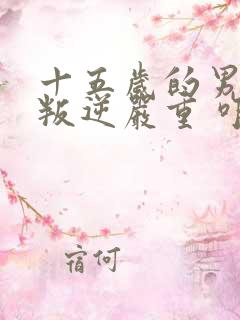 十五歲的男
叛逆嚴重
宿何